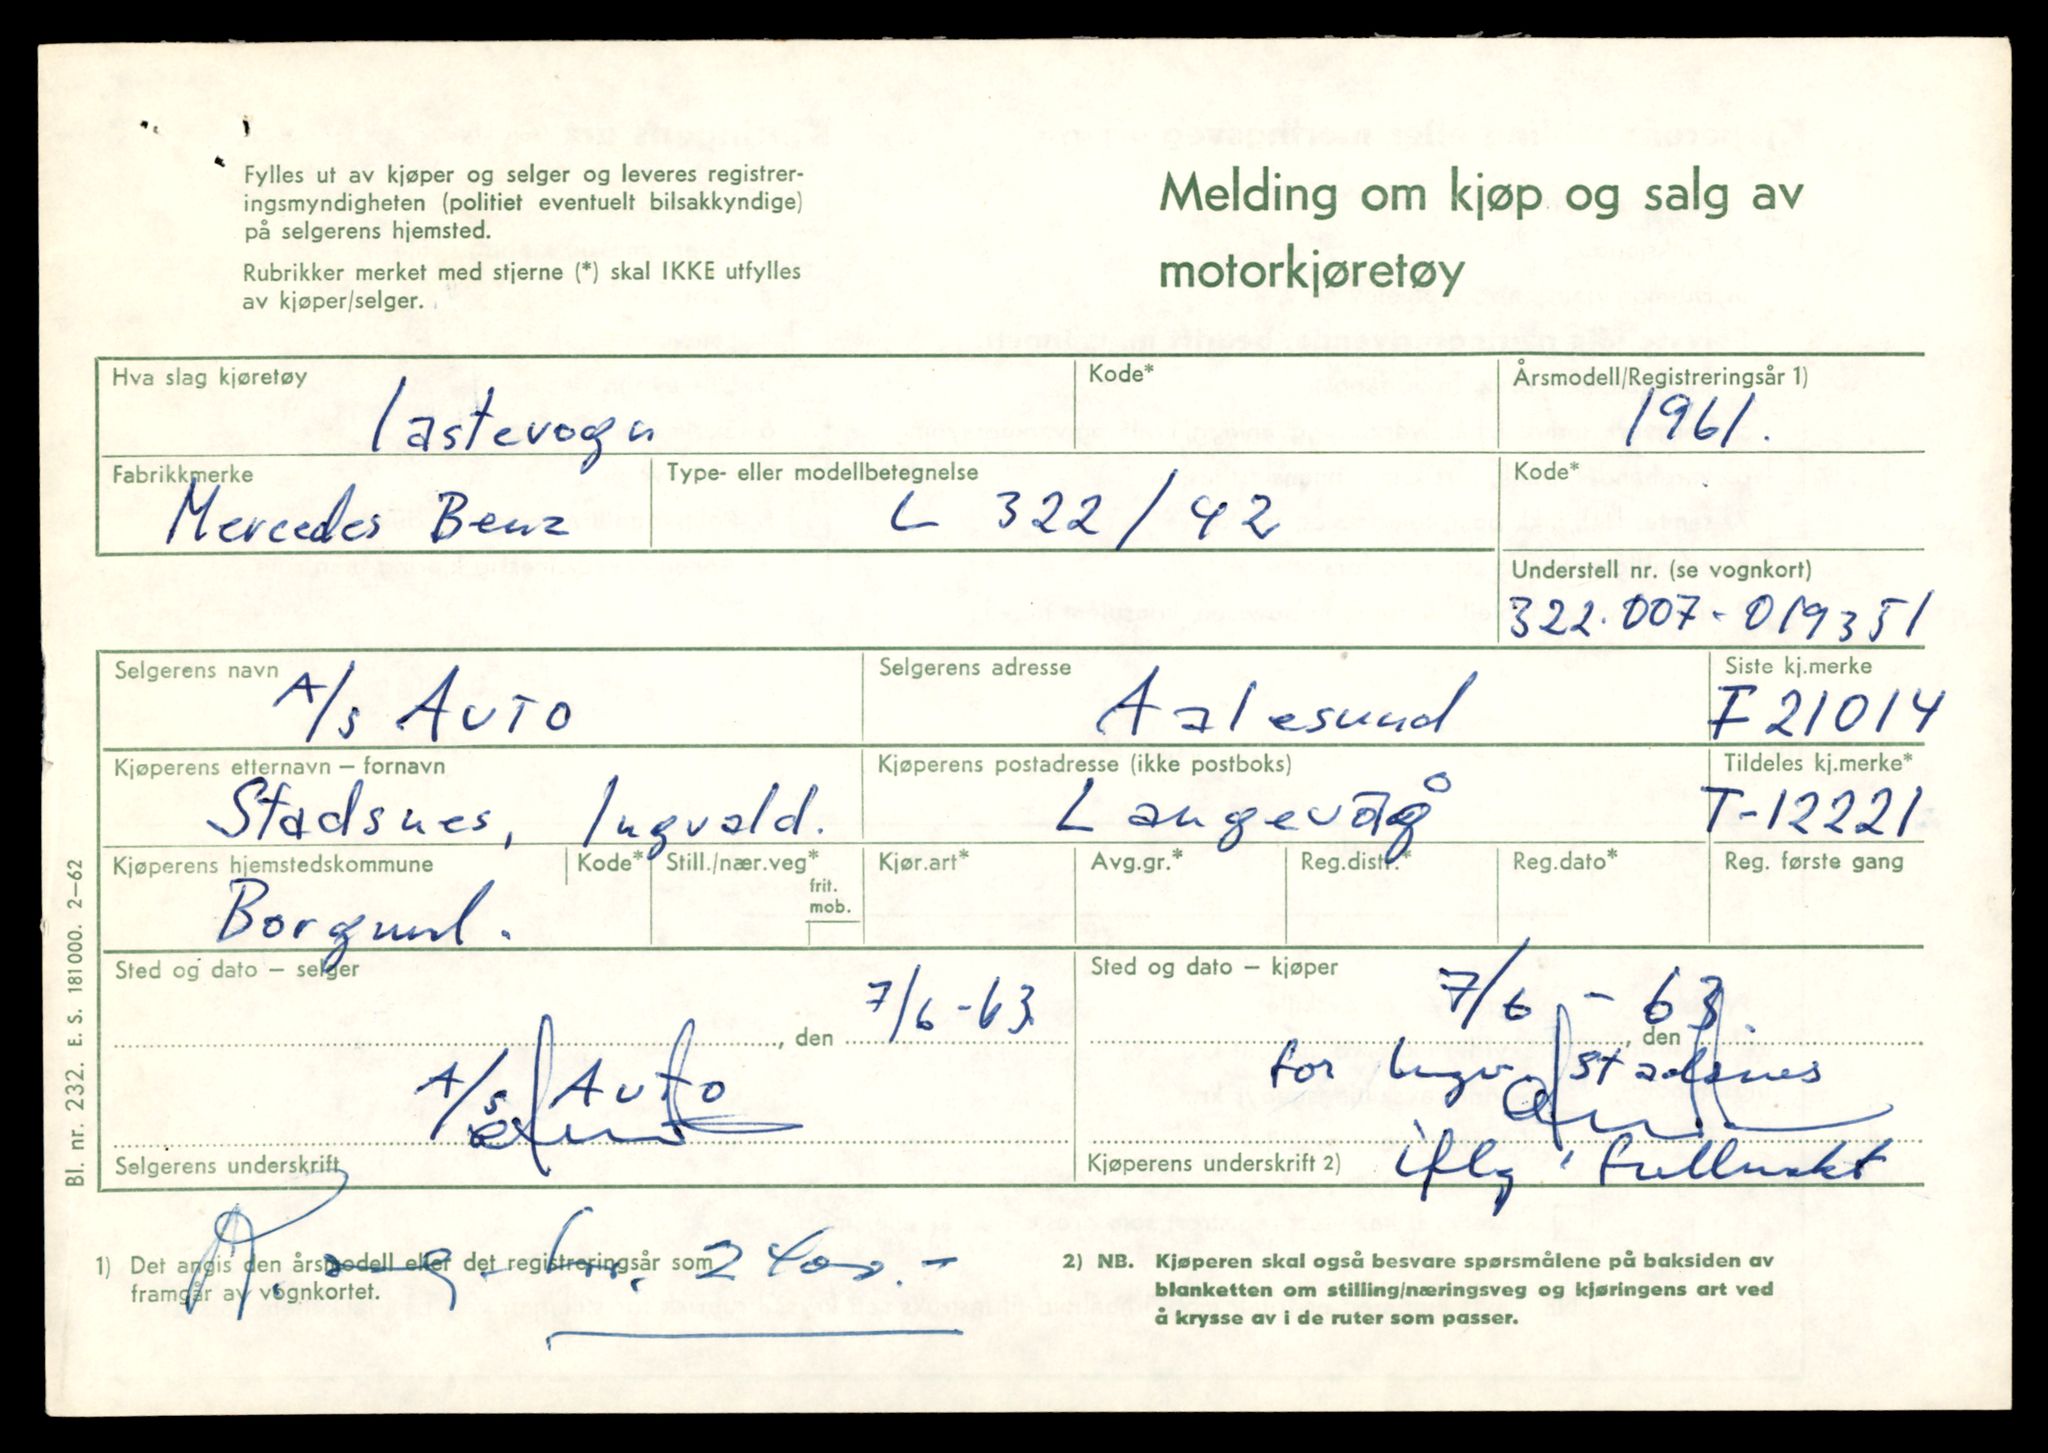 Fylles ut av kjøper og selger og leveres registrer-
ingsmyndigheten (politiet eventuelt bilsakkyndige)
på selgerens hjemsted.
Rubrikker merket med stjerne (*) skal IKKE utfylles
av kjøper/selger.
Melding om kjøp og salg av
motorkjøretøy
Hva slag kjøretøy
Kode*
Årsmodell/Registreringsår 1)
lastevogn
1961.
Fabrikkmerke
Type- eller modellbetegnelse
Kode*
Mercedes Benz
L 322/42
Understell nr. (se vognkort)
322.007-019351
Selgerens navn
Selgerens adresse
Siste kj.merke
A/s AUTO
Aalesund
F 21014
Kjøperens etternavn – fornavn
Kjøperens postadresse (ikke postboks)
Tildeles kj.merke*
Stadsnes, Ingvald.
Langevåg
T-12221
Kjøperens hjemstedskommune
Kode*
Still./nær.veg*
frit.
mob.
Kjør.art*
Avg.gr.*
Reg.distr.*
Reg.dato*
Reg. første gang
Borgund.
Sted og dato – selger
Sted og dato – kjøper
, den 7/6-63
7/6-63. , den
A/s AUTO
for Ingv. Stadsnes
Selgerens underskrift
Kjøperens underskrift 2)
iflg. fullmakt
1) Det angis den årsmodell eller det registreringsår som
framgår av vognkortet.
2) NB. Kjøperen skal også besvare spørsmålene på baksiden av
blanketten om stilling/næringsveg og kjøringens art ved
å krysse av i de ruter som passer.
Bl. nr. 232. E. S. 181000. 2–62